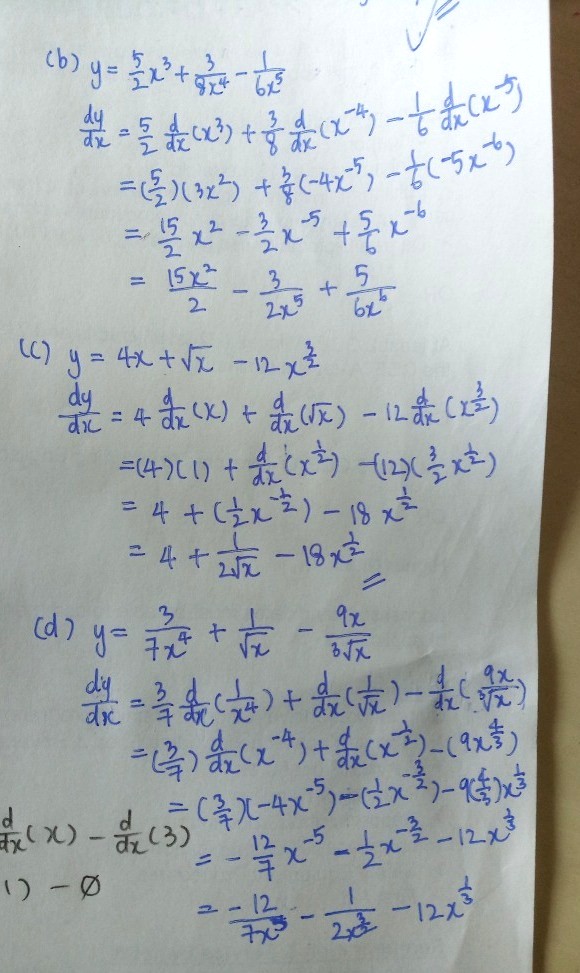 (b) y = 5/2 x³ + 3/8x⁴ - 1/6x⁵
dy/dx = 5/2 d/dx (x³) + 3/8 d/dx (x⁻⁴) - 1/6 d/dx (x⁻⁵)
= (5/2)(3x²) + 3/8 (-4x⁻⁵) - 1/6 (-5x⁻⁶)
= 15/2 x² - 3/2 x⁻⁵ + 5/6 x⁻⁶
= 15x²/2 - 3/2x⁵ + 5/6x⁶
(c) y = 4x + √x - 12x^(3/2)
dy/dx = 4 d/dx (x) + d/dx (√x) - 12 d/dx (x^(3/2))
= (4)(1) + d/dx (x^(1/2)) - (12)(3/2 x^(1/2))
= 4 + (1/2 x^(-1/2)) - 18x^(1/2)
= 4 + 1/2√x - 18x^(1/2)
(d) y = 3/7x⁴ + 1/√x - 9x/³√x
dy/dx = 3/7 d/dx (1/x⁴) + d/dx (1/√x) - d/dx (9x/³√x)
= (3/7) d/dx (x⁻⁴) + d/dx (x^(-1/2)) - (9x^(4/3))
= (3/7)(-4x⁻⁵) - (1/2 x^(-3/2)) - 9(4/3)x^(1/3)
d/dx (x) - d/dx (3)
= - 12/7 x⁻⁵ - 1/2 x^(-3/2) - 12x^(1/3)
1) - 0
= -12/7x⁵ - 1/2x^(3/2) - 12x^(1/3)